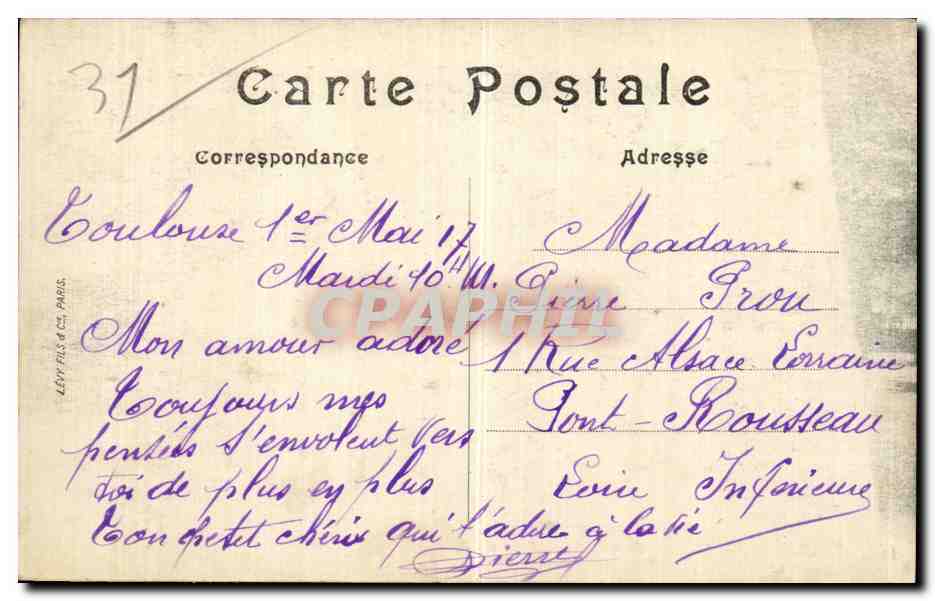 31
Carte Postale
Correspondance
Adresse
Toulouse 1er Mai 17
Mardi 10 H M.
Mon amour adoré
Toujours mes
pensées s'envolent vers
toi de plus en plus
Ton petit chéri qui t'adore à la vie
Pierre
Madame
Pierre Prou
1 Rue Alsace Lorraine
Pont-Rousseau
Loire Inférieure
LÉVY FILS & Cie, PARIS.
CPAPHIL